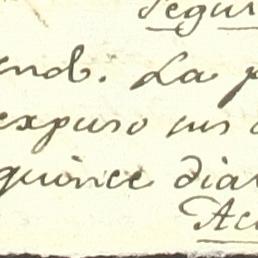 Segur
end. La p
expuso sus
quince dias
Ac